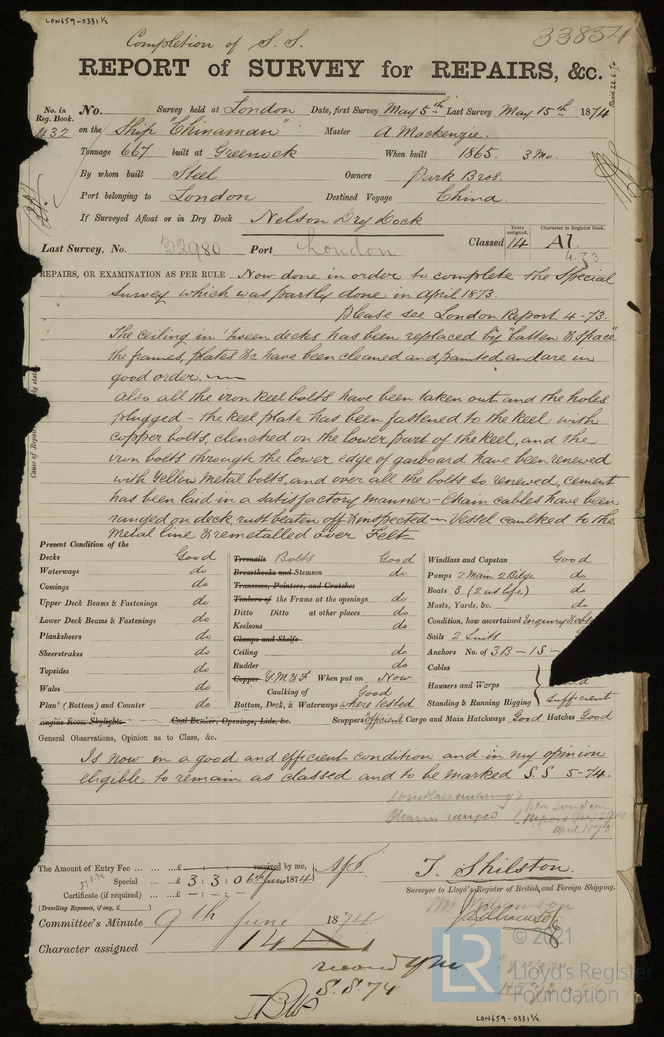 LON659-0331½
Completion of S. S.
33854
REPORT of SURVEY for REPAIRS, &c.
No. in Reg. Book.
No. Survey held at London Date, first Survey May 5th Last Survey May 15th 1874
432 on the Ship "Chinaman" Master A Mackenzie.
Tonnage 667 built at Greenock When built 1865. 3 Mo.
By whom built Steel Owners Park Bros.
Port belonging to London Destined Voyage China.
If Surveyed Afloat or in Dry Dock Nelson Dry Dock
Last Survey, No. 32980 Port London Classed Years assigned. 14 Character in Register Book. A1.
4.73
REPAIRS, OR EXAMINATION AS PER RULE Now done in order to complete the Special
Survey which was partly done in April 1873.
Please see London Report 4-73.
The ceiling in 'tween decks has been replaced by "batten & space"
the frames, plates &c have been cleaned and painted and are in
good order.
Also all the iron keel bolts have been taken out and the holes
plugged - the keel plate has been fastened to the keel with
copper bolts, clenched on the lower part of the keel, and the
iron bolts through the lower edge of garboard have been renewed
with Yellow Metal bolts, and over all the bolts so renewed, cement
has been laid in a satisfactory manner - Chain cables have been
ranged on deck, rust beaten off & inspected - Vessel caulked to the
Metal line & remetalled over Felt
Present Condition of the
Decks Good
Waterways do
Comings do
Upper Deck Beams & Fastenings do
Lower Deck Beams & Fastenings do
Planksheers do
Sheerstrakes do
Topsides do
Wales do
Plan' (Bottom) and Counter do
Engine Room Skylights
Coal Bunker, Openings, Lids, &c.
Treenails Bolts Good
Breasthooks and Stemson do
Transoms, Pointers, and Crutches
Timbers of the Frame at the openings do
Ditto Ditto at other places do
Keelsons do
Clamps and Shelfs
Ceiling do
Rudder do
Copper Y.M. & F. When put on Now
Caulking of Good
Bottom, Deck, & Waterways where tested
Scuppers Efficient Cargo and Main Hatchways Good Hatches Good
Windlass and Capstan Good
Pumps 2 Main 2 Bilge do
Boats 3 (2 as life) do
Masts, Yards, &c. do
Condition, how ascertained Enquiry &
Sails 2 Suits
Anchors No. of 3B - 1S -
Cables
Hawsers and Warps
Standing & Running Rigging Sufficient
General Observations, Opinion as to Class, &c.
Is now in a good and efficient condition and in my opinion
eligible to remain as classed and to be marked S.S 5-74.
Chains ranged
per London
April 1873
The Amount of Entry Fee ... ... £ : : received by me,
Special ... £ 3 : 3 : 0 6th June 1874
Certificate (if required) ... £ - : - : -
(Travelling Expenses, if any, £ )
T. Shilston.
Surveyor to Lloyd's Register of British and Foreign Shipping.
Committee's Minute 9th June 1874
Character assigned 14 A 1
record YM
S.S. 74
© 2021
LR
Lloyd's Register
Foundation
LON659-0331½